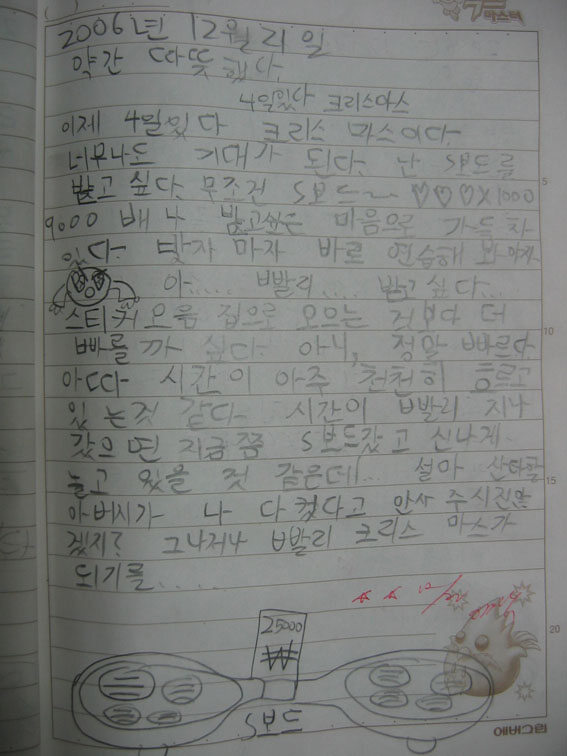 마스터
2006년 12월 21일
약간 따뜻했다.
4일있다 크리스마스
이제 4일있다 크리스 마스이다.
너무나도 기대가 된다. 난 S보드를
받고 싶다. 무조건 S보드~ ♡♡♡X1000
9000 배나 받고싶은 마음으로 가득차
있다. 받자 마자 바로 연습해 봐야지
아..... 빨리.... 받고싶다...
스티커 모음 집으로 모으는 것보다 더
빠를까 싶다. 아니, 정말 빠르다.
아따 시간이 아주 천천히 흐르고
있는것 같다. 시간이 빨리 지나
갔으면 지금쯤 S보드갖고 신나게
놀고 있을 것 같은데... 설마 산타할
아버지가 나 다컸다고 안사 주시진않
겠지? 그나저나 빨리 크리스 마스가
되기를.....
5
10
15
20
12/22
25000
₩
S보드